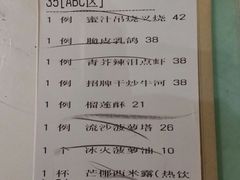 35[ABC区]
1 例 蜜汁吊烧叉烧 42
1 例 脆皮乳鸽 38
1 例 青芥辣汨点虾 38
1 例 招牌干炒牛河 38
1 例 榴莲酥 21
1 例 流沙菠萝塔 26
1 个 冰火菠萝油 10
1 杯 芒椰西米露(热饮